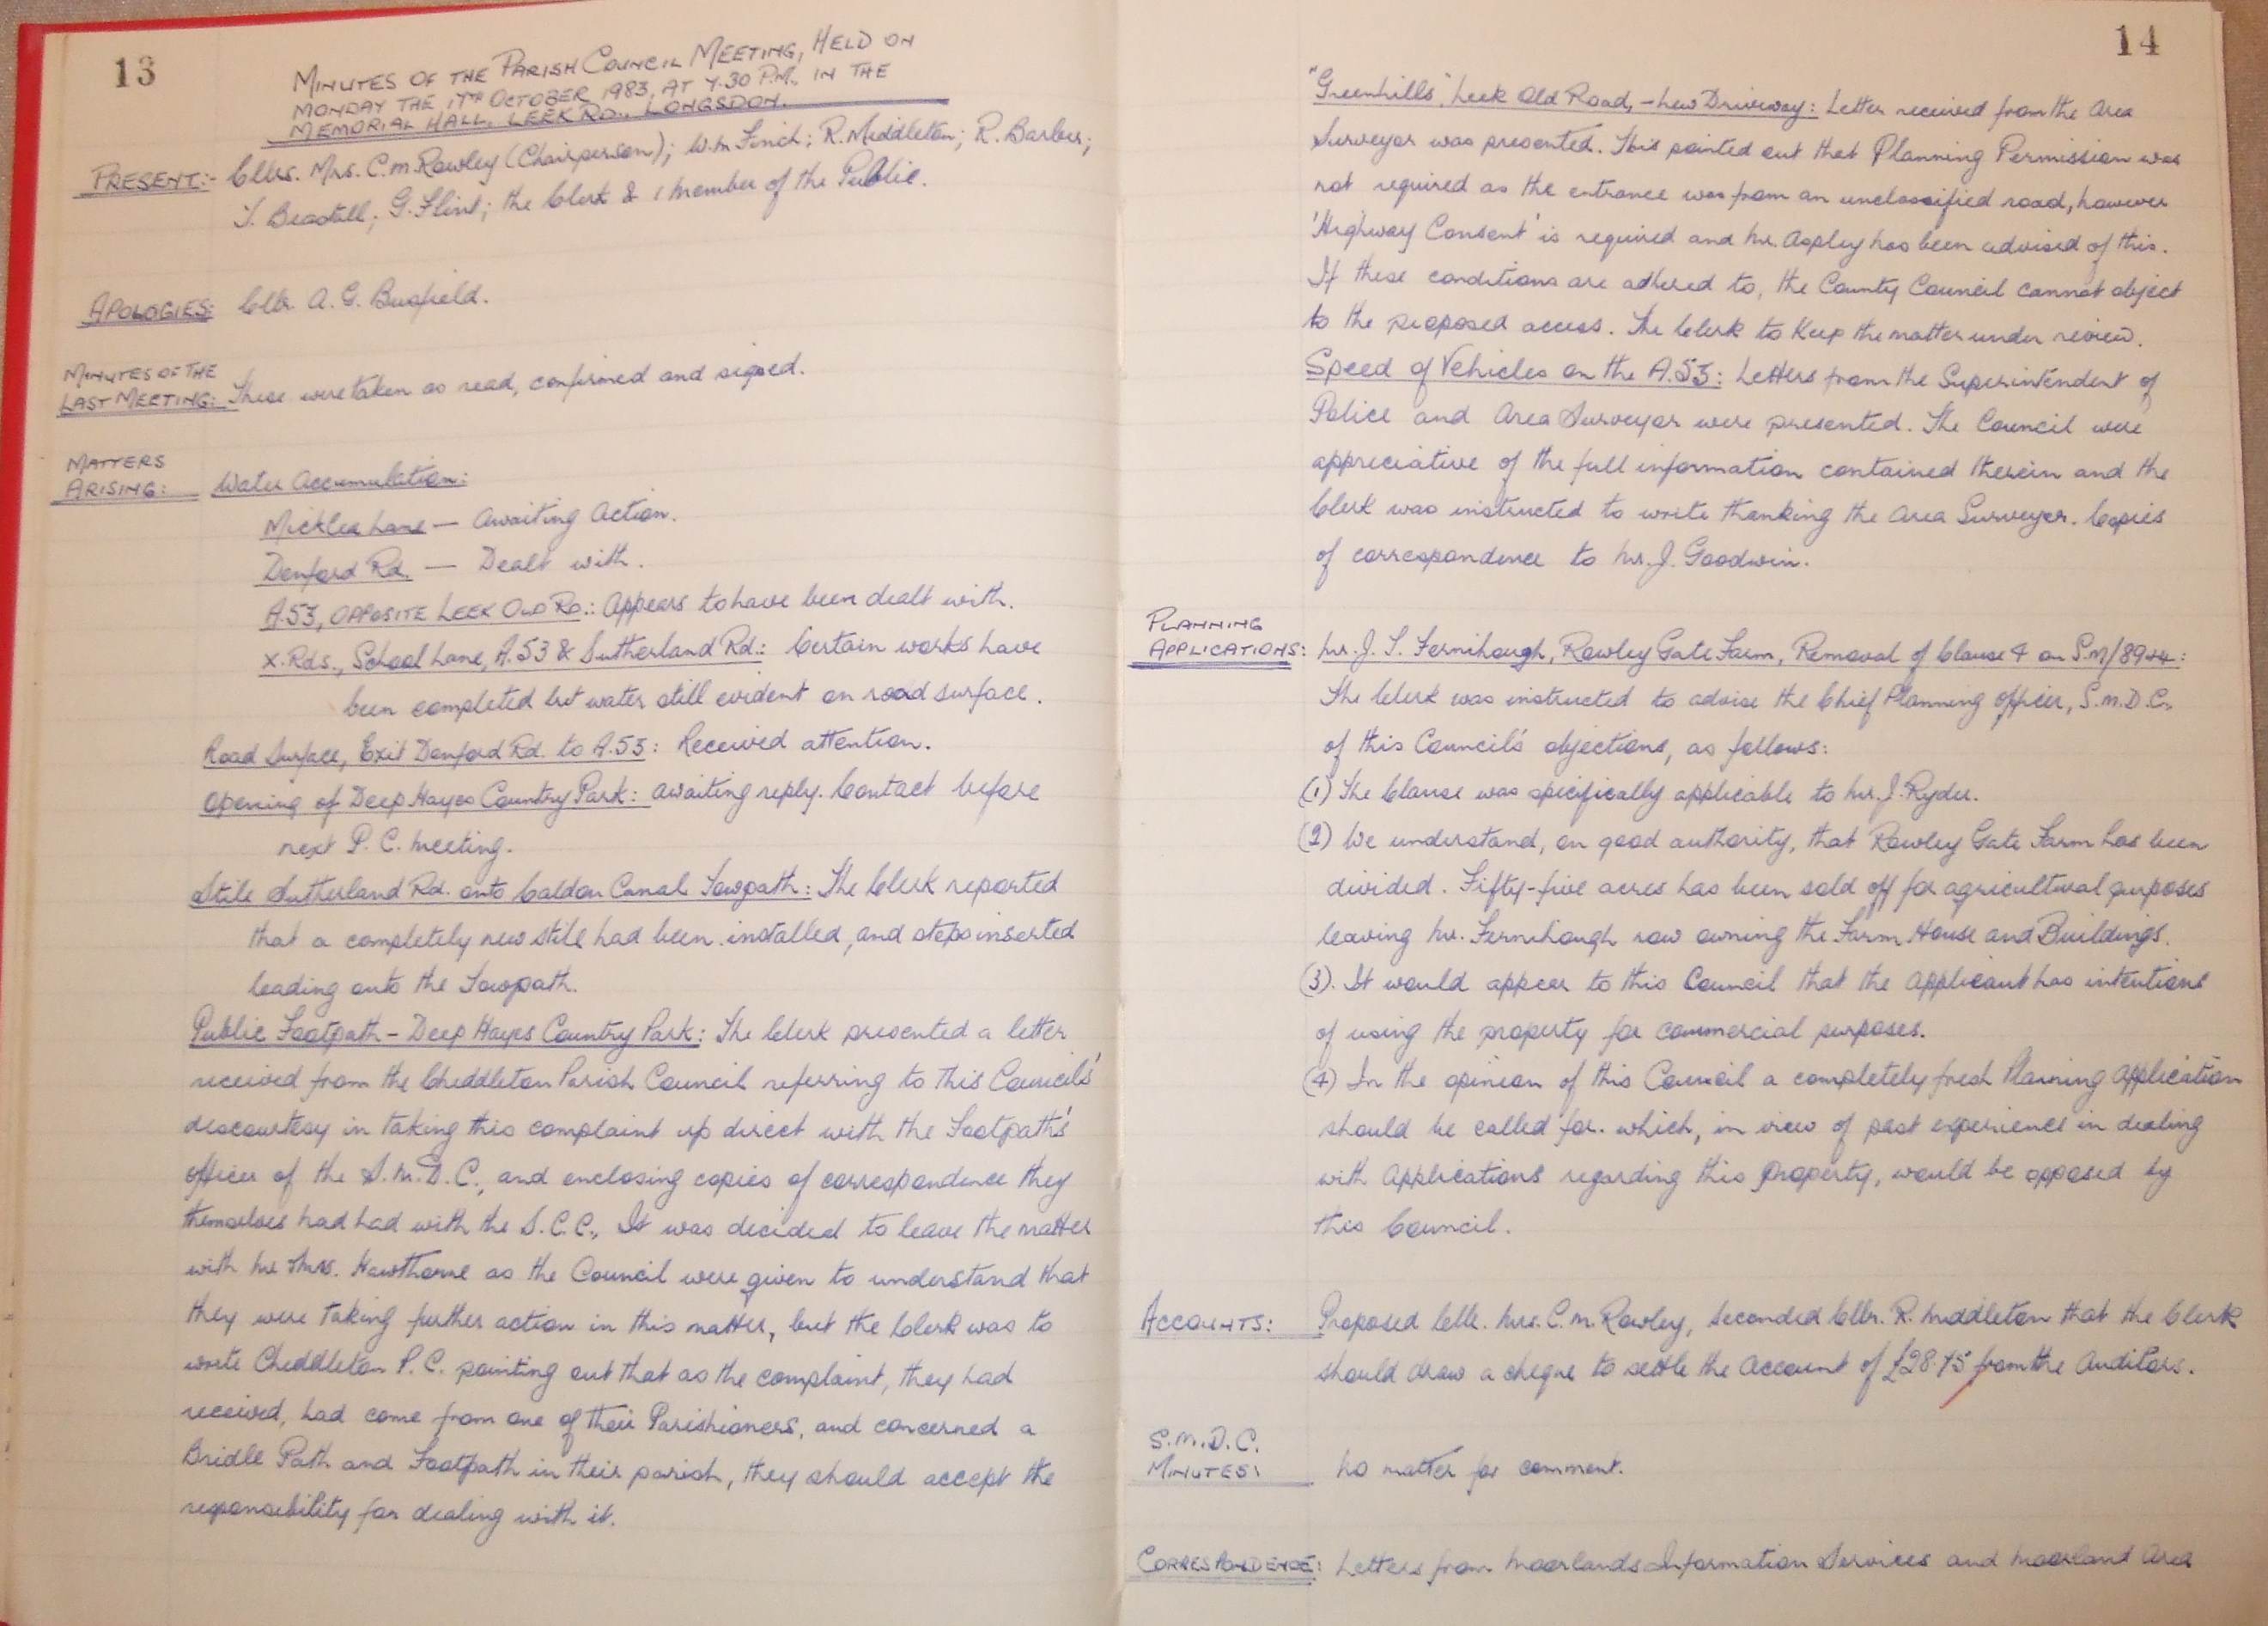 13
MINUTES OF THE PARISH COUNCIL MEETING, HELD ON
MONDAY THE 17TH OCTOBER 1983, AT 7.30 P.M. IN THE
MEMORIAL HALL, LEEK RD., LONGSDON.
PRESENT:- Cllrs. Mrs. C.M. Rowley (Chairperson); W.M. Finch; R. Middleton; R. Barber;
T. Beastall; G. Flint; the Clerk & 1 Member of the Public.
APOLOGIES: Cllr. A. G. Busfield.
MINUTES OF THE
LAST MEETING: These were taken as read, confirmed and signed.
MATTERS
ARISING: Water Accumulation:
Micklea Lane — Awaiting Action.
Denford Rd. — Dealt with.
A.53, OPPOSITE LEEK OLD RD.: Appears to have been dealt with.
X.Rds., School Lane, A.53 & Sutherland Rd.: Certain works have
been completed but water still evident on road surface.
Road Surface, Exit Denford Rd. to A.53: Received attention.
Opening of Deep Hayes Country Park: awaiting reply. Contact before
next P.C. Meeting.
Stile Sutherland Rd. onto Caldon Canal Towpath: The Clerk reported
that a completely new stile had been installed, and steps inserted
leading onto the Towpath.
Public Footpath - Deep Hayes Country Park: The Clerk presented a letter
received from the Cheddleton Parish Council referring to this Council's
discourtesy in taking this complaint up direct with the Footpath's
Officer of the S.M.D.C., and enclosing copies of correspondence they
themselves had had with the S.C.C., It was decided to leave the matter
with Mr & Mrs. Hawthorne as the Council were given to understand that
they were taking further action in this matter, but the Clerk was to
write Cheddleton P.C. pointing out that as the complaint, they had
received, had come from one of their Parishioners, and concerned a
Bridle Path and Footpath in their parish, they should accept the
responsibility for dealing with it.
14
"Greenhills", Leek Old Road, - New Driveway: Letter received from the Area
Surveyor was presented. This pointed out that Planning Permission was
not required as the entrance was from an unclassified road, however
'Highway Consent' is required and Mr. Aspley has been advised of this.
If these conditions are adhered to, the County Council cannot object
to the proposed access. The Clerk to Keep the matter under review.
Speed of Vehicles on the A.53: Letters from the Superintendent of
Police and Area Surveyor were presented. The Council were
appreciative of the full information contained therein and the
Clerk was instructed to write thanking the Area Surveyor. Copies
of correspondence to Mr. J. Goodwin.
PLANNING
APPLICATIONS: Mr. J. T. Fernihough, Rowley Gate Farm, Removal of Clause 4 on S.M/8944:
The Clerk was instructed to advise the Chief Planning Officer, S.M.D.C.,
of this Council's objections, as follows:
(1) The Clause was specifically applicable to Mr. J. Ryder.
(2) We understand, on good authority, that Rowley Gate Farm has been
divided. Fifty-five acres has been sold off for agricultural purposes
leaving Mr. Fernihough now owning the Farm House and Buildings.
(3). It would appear to this Council that the Applicant has intentions
of using the property for commercial purposes.
(4) In the opinion of this Council a completely fresh Planning Application
should be called for. which, in view of past experience in dealing
with Applications regarding this Property, would be opposed by
this Council.
ACCOUNTS: Proposed Cllr. Mrs. C.M. Rowley, Seconded Cllr. R. Middleton that the Clerk
should draw a cheque to settle the Account of £28.75 from the Auditors.
S.M.D.C.
MINUTES: No matter for comment.
CORRESPONDENCE: Letters from Moorlands Information Services and Moorland Area